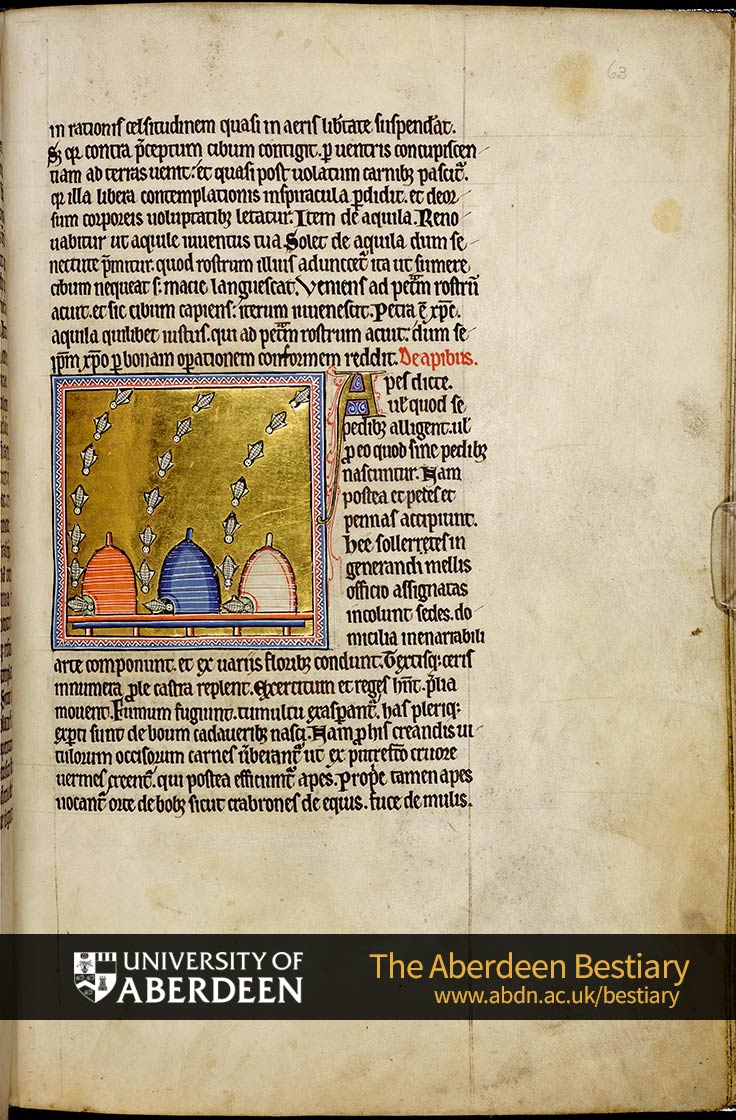 63
in rationis celsitudinem quasi in aeris lib̄tate suspend̄at.
S; qr contra p̄ceptum cibum contigit. ꝑ uentris concupiscen
tiam ad terras uenit: et quasi post uolatum carnibꝫ pascit᷑.
qr illa libera contemplationis inspiracula ꝑdidit. et deor
sum corporeis uoluptatibꝫ letatur. Item de aquila. Reno
uabitur ut aquile iuuentus tua. Solet de aquila dum se
nectute p̄mitur. quod rostrum illius aduncet᷑ ita ut sumere
cibum nequeat s; macie languescat. Veniens ad petᵃm rostrū
acuit. et sic cibum capiens: iterum iuuenescit. Petra ē xp̄c.
aquila quilibet iustus. qui ad petᵃm rostrum acuit: dum se
ip̄m xp̄o ꝑ bonam oꝑationem conformem reddit. De apibus.
Apes dicte.
ul̄ quod se
pedibꝫ alligent. ul̄
ꝓ eo quod sine pedibꝫ
nascuntur. Nam
postea et pedes et
pennas accipiunt.
hee sollertes in
generandi mellis
officio assignatas
incolunt sedes. do
micilia inenarrabili
arte componunt. et ex uariis floribꝫ condunt. Textisqꝫ ceris
innumera ꝓle castra replent. Exercitum et reges hn̄t. p̄lia
mouent. Fumum fugiunt. tumultu exasperant᷑. has pleriqꝫ
exꝑti sunt de boum cadaueribꝫ nasci. Nam ꝓ his creandis ui
tulorum occisorum carnes ūberant᷑ ut ex putrefc̄o cruore
uermes creent᷑. qui postea efficiunt᷑ apes. Prop̄e tamen apes
uocant᷑ orte de bobꝫ sicut crabrones de equis. fuce de mulis.
UNIVERSITY OF
ABERDEEN
The Aberdeen Bestiary
www.abdn.ac.uk/bestiary